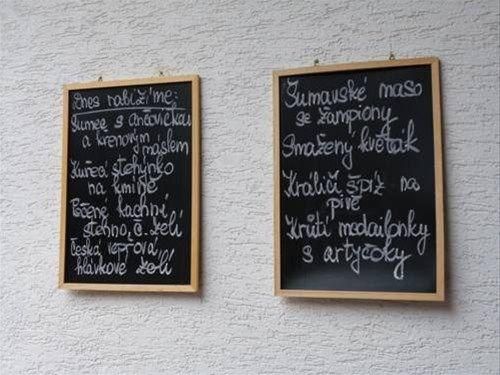 Dnes nabízíme:
Sumec s ančovičkou
a křenovým
máslem
Kuřecí stehýnko
na kmíně
Pečené kachní
stehno, č. zelí
Česká vepřová
hlávkové zelí
Šumavské maso
se žampiony
Smažený květák
Králičí špíz na
pivě
Krůtí medailonky
s artyčoky